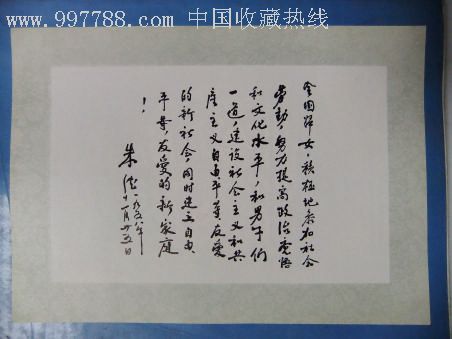 www.997788.com 中国收藏热线
全国妇女，积极地参加社会
劳动，努力提高政治觉悟
和文化水平，和男子们
一道，建设社会主义和共
产主义自由平等友爱
的新社会，同时建立自由、
平等、友爱的新家庭
！
朱德 一九五八年
十一月廿五日